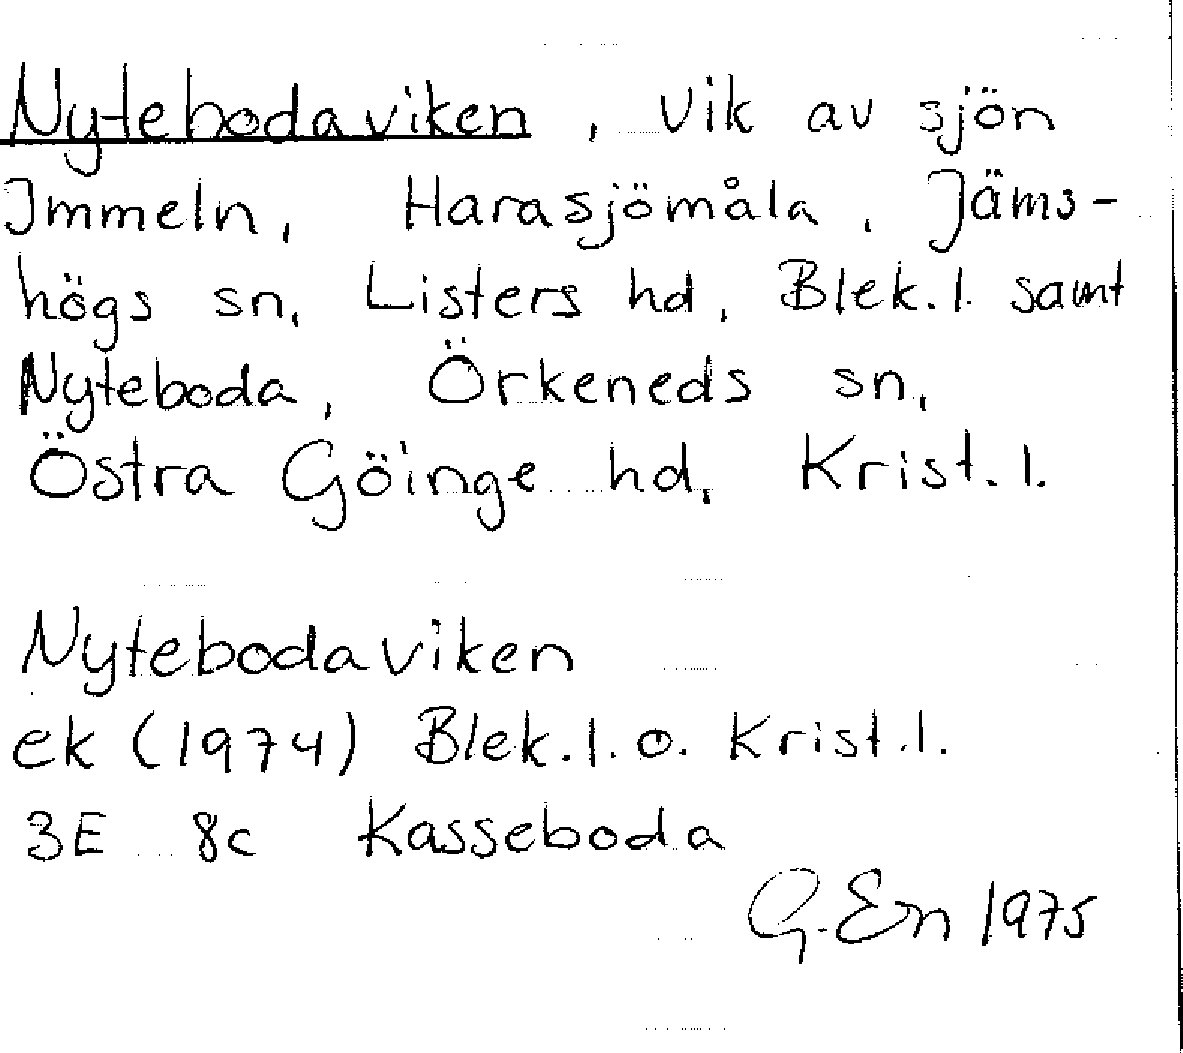 Nytebodaviken, vik av sjön
Immeln, Harasjömåla, Jäms-
högs sn, Listers hd, Blek. l. samt
Nyteboda, Örkeneds sn,
Östra Göinge hd, Krist. l.
Nytebodaviken
ek (1974) Blek. l. o. Krist. l.
3E 8c Kasseboda
G. En 1975